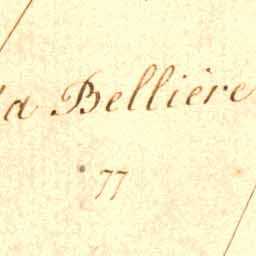 la Bellière
77